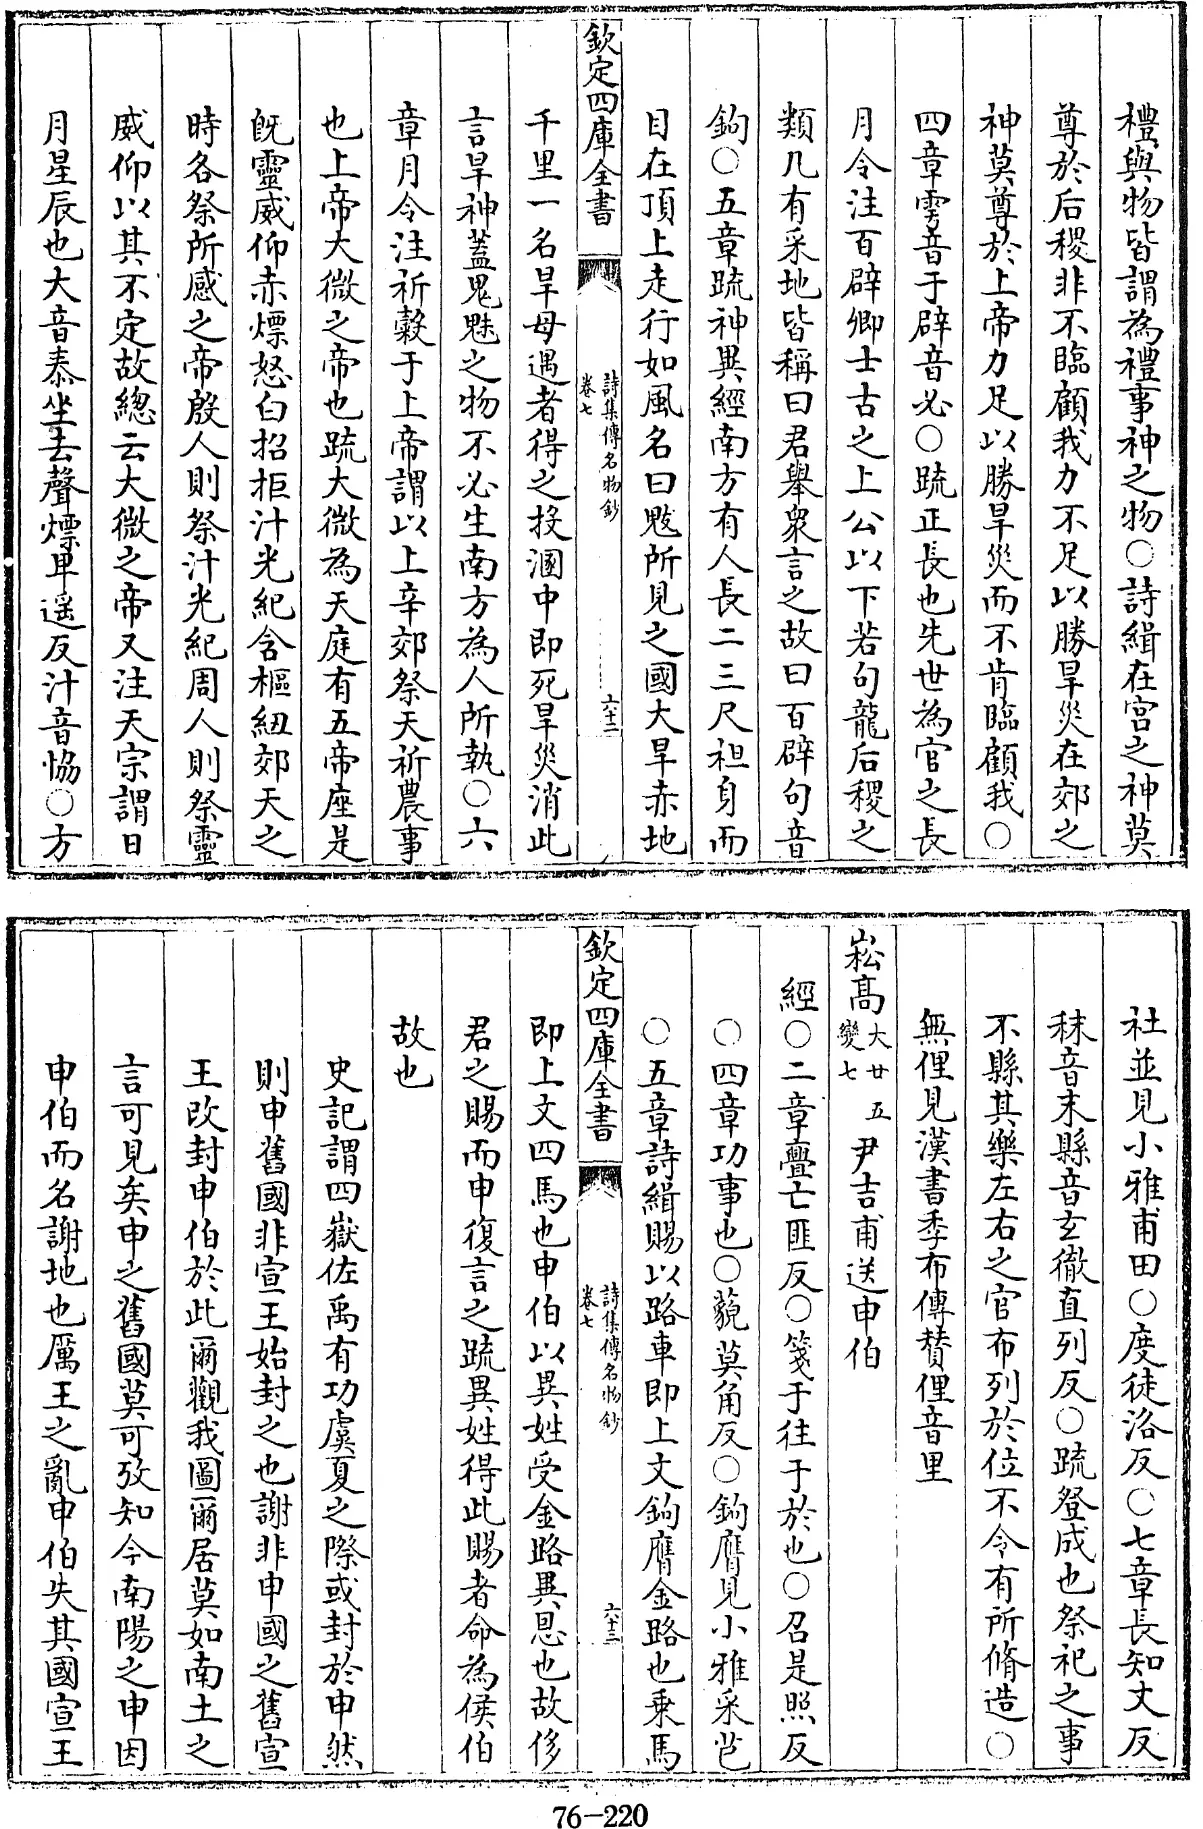 禮與物皆謂為禮事神之物○詩緝在宮之神莫
尊於后稷非不臨顧我力不足以勝旱災在郊之
神莫尊於上帝力足以勝旱災而不肯臨顧我○
四章雩音于辟音必○疏正長也先世為官之長
月令注百辟卿士古之上公以下若句龍后稷之
類凡有采地皆稱曰君舉衆言之故曰百辟句音
鉤○五章疏神異經南方有人長二三尺袒身而
目在頂上走行如風名曰魃所見之國大旱赤地
欽定四庫全書
詩集傳名物鈔
卷七
六十二
千里一名旱母遇者得之投溷中即死旱災消此
言旱神蓋鬼魅之物不必生南方為人所執○六
章月令注祈穀于上帝謂以上辛郊祭天祈農事
也上帝大微之帝也疏大微為天庭有五帝座是
旣靈威仰赤熛怒白招拒汁光紀含樞紐郊天之
時各祭所感之帝殷人則祭汁光紀周人則祭靈
威仰以其不定故總云大微之帝又注天宗謂日
月星辰也大音泰坐去聲熛卑遥反汁音恊○方
社並見小雅甫田○度徒洛反○七章長知丈反
秣音末縣音玄徹直列反○疏登成也祭祀之事
不縣其樂左右之官布列於位不令有所脩造○
無俚見漢書季布傳賛俚音里
崧高大廿五變七尹吉甫送申伯
經○二章亹亡匪反○箋于往于於也○召是照反
○四章功事也○藐莫角反○鉤膺見小雅采芑
○五章詩緝賜以路車即上文鉤膺金路也乘馬
欽定四庫全書
詩集傳名物鈔
卷七
六十三
即上文四馬也申伯以異姓受金路異恩也故侈
君之賜而申復言之疏異姓得此賜者命為侯伯
故也
史記謂四嶽佐禹有功虞夏之際或封於申然
則申舊國非宣王始封之也謝非申國之舊宣
王改封申伯於此爾觀我圖爾居莫如南土之
言可見矣申之舊國莫可攷知今南陽之申因
申伯而名謝地也厲王之亂申伯失其國宣王
76-220